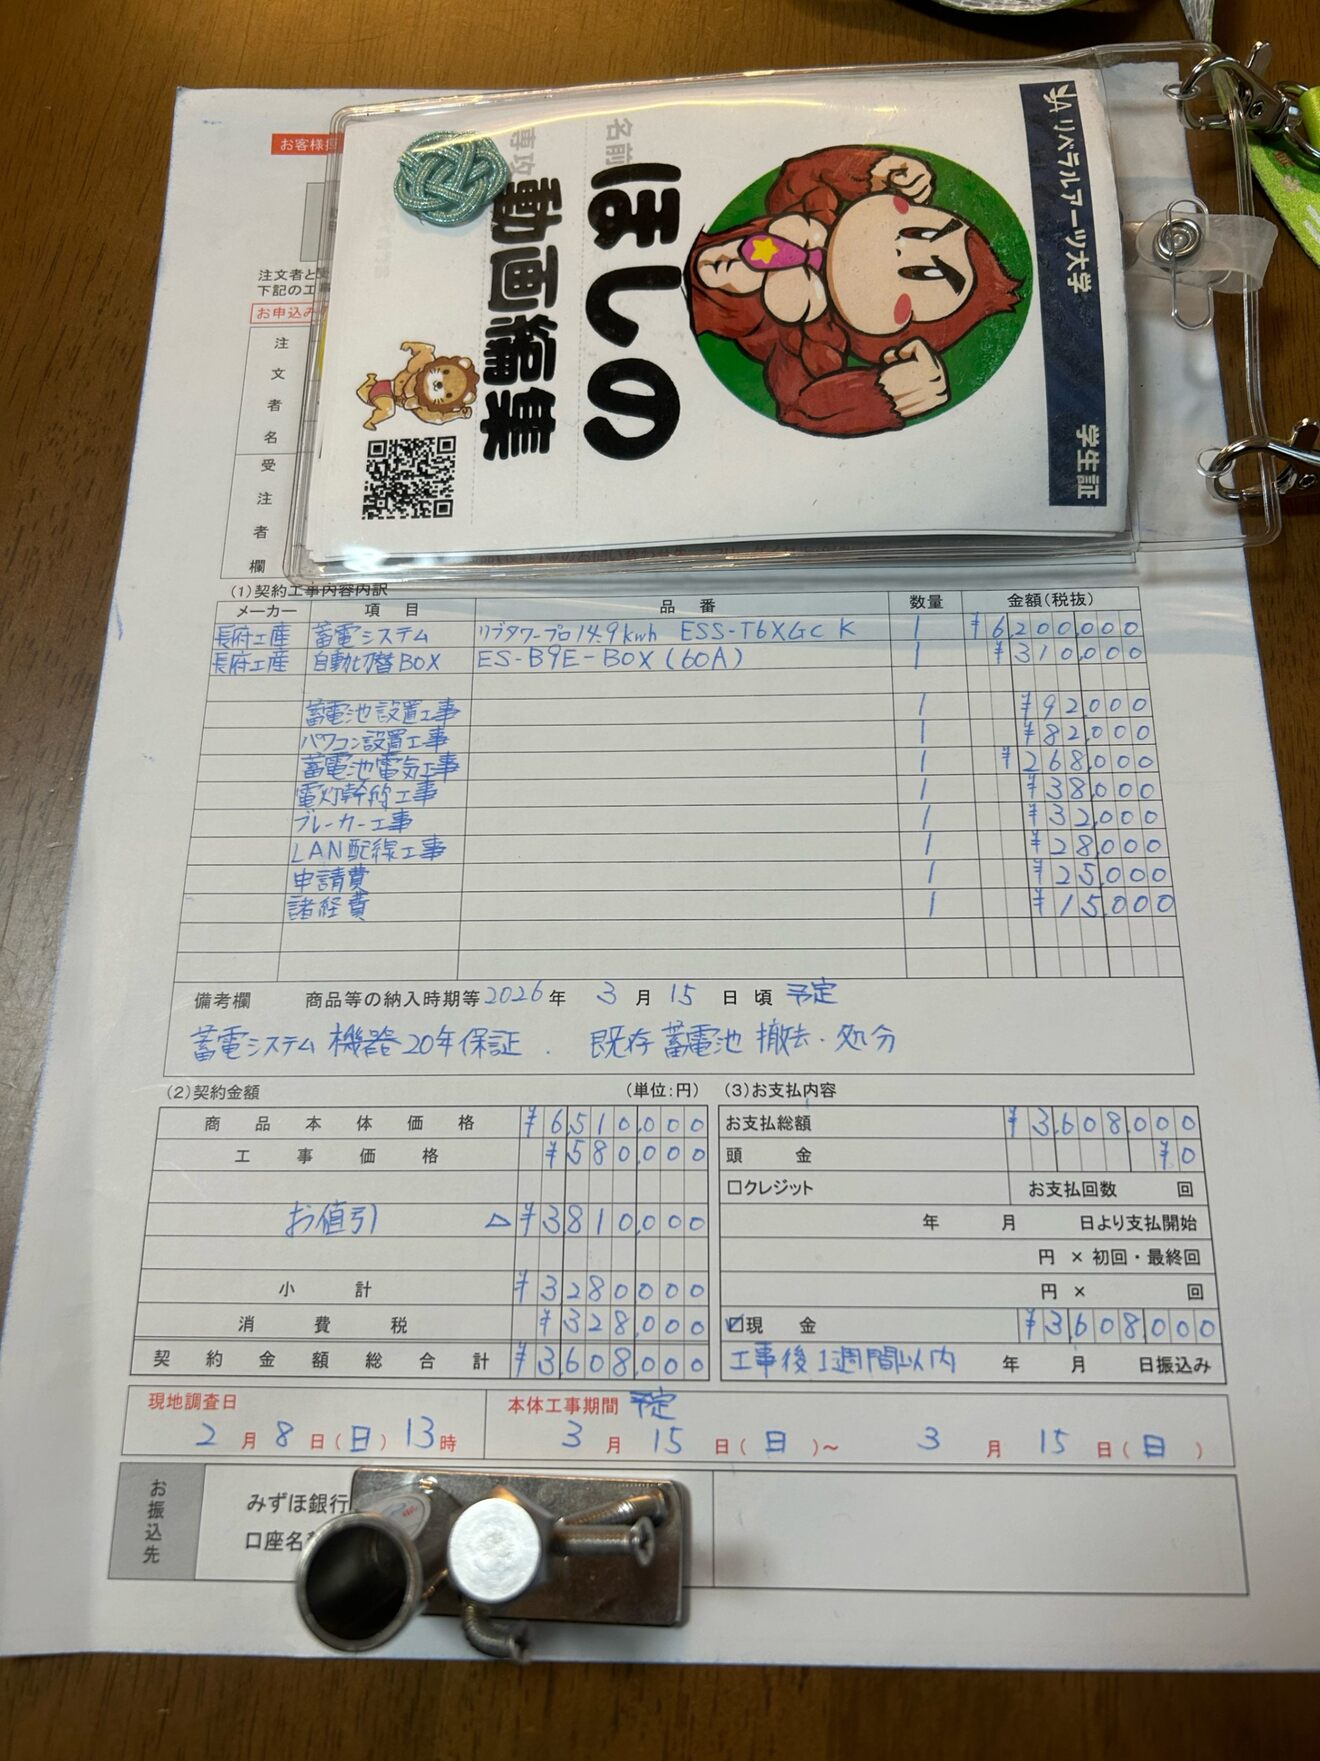 お客様
リベラルアーツ大学 学生証
名前
ほしの
専攻
動画編集
注文者と
下記の工
お申込み
注文者名
受注者欄
(1)契約工事内容内訳
メーカー 項目 品番 数量 金額(税抜)
長府工産 蓄電システム リブタワープロ14.9kwh ESS-T6XGCK 1 ¥6,200,000
長府工産 自動切替BOX ES-B9E-BOX(60A) 1 ¥310,000
蓄電池設置工事 1 ¥92,000
パワコン設置工事 1 ¥82,000
蓄電池電気工事 1 ¥268,000
電灯幹線工事 1 ¥38,000
ブレーカー工事 1 ¥32,000
LAN配線工事 1 ¥28,000
申請費 1 ¥25,000
諸経費 1 ¥15,000
備考欄 商品等の納入時期等 2026年 3月 15日頃 予定
蓄電システム機器20年保証. 既存蓄電池撤去・処分
(2)契約金額 (単位:円)
商品本体価格 ¥6,510,000
工事価格 ¥580,000
お値引 △¥3,810,000
小計 ¥3280000
消費税 ¥328,000
契約金額総合計 ¥3,608,000
(3)お支払内容
お支払総額 ¥3,608,000
頭金 ¥0
□クレジット お支払回数 回
年 月 日より支払開始
円 × 初回・最終回
円 × 回
☑現金 ¥3,608,000
工事後1週間以内 年 月 日振込み
現地調査日
2月8日(日)13時
本体工事期間 予定
3月15日(日)~ 3月15日(日)
お振込先
みずほ銀行
口座名